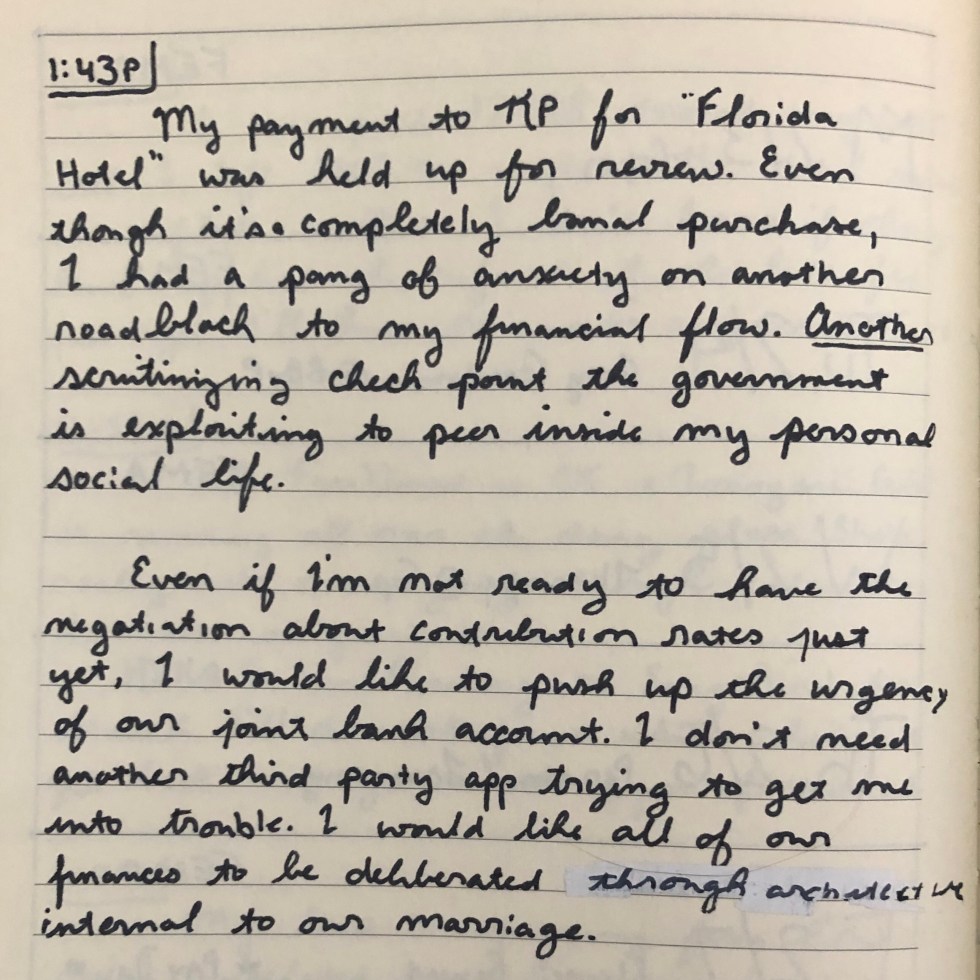 1:43P
My payment to KP for "Florida
Hotel" was held up for review. Even
though it's a completely banal purchase,
I had a pang of anxiety on another
roadblock to my financial flow. Another
scrutinizing check point the government
is exploiting to peer inside my personal
social life.
Even if I'm not ready to have the
negotiation about contribution rates just
yet, I would like to push up the urgency
of our joint bank account. I don't need
another third party app trying to get me
into trouble. I would like all of our
finances to be deliberated through architecture
internal to our marriage.